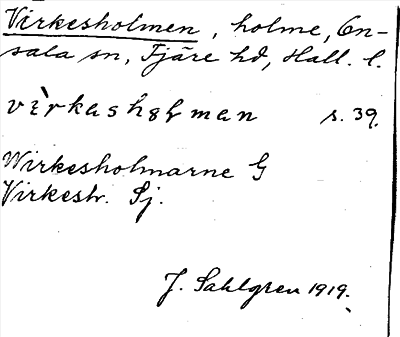 Virkesholmen, holme, On-
sala sn, Fjäre hd, Hall. l.
vìrkashɷļman s. 39.
Wirkesholmarne G
Virkesh. Sj.
J. Sahlgren 1919.